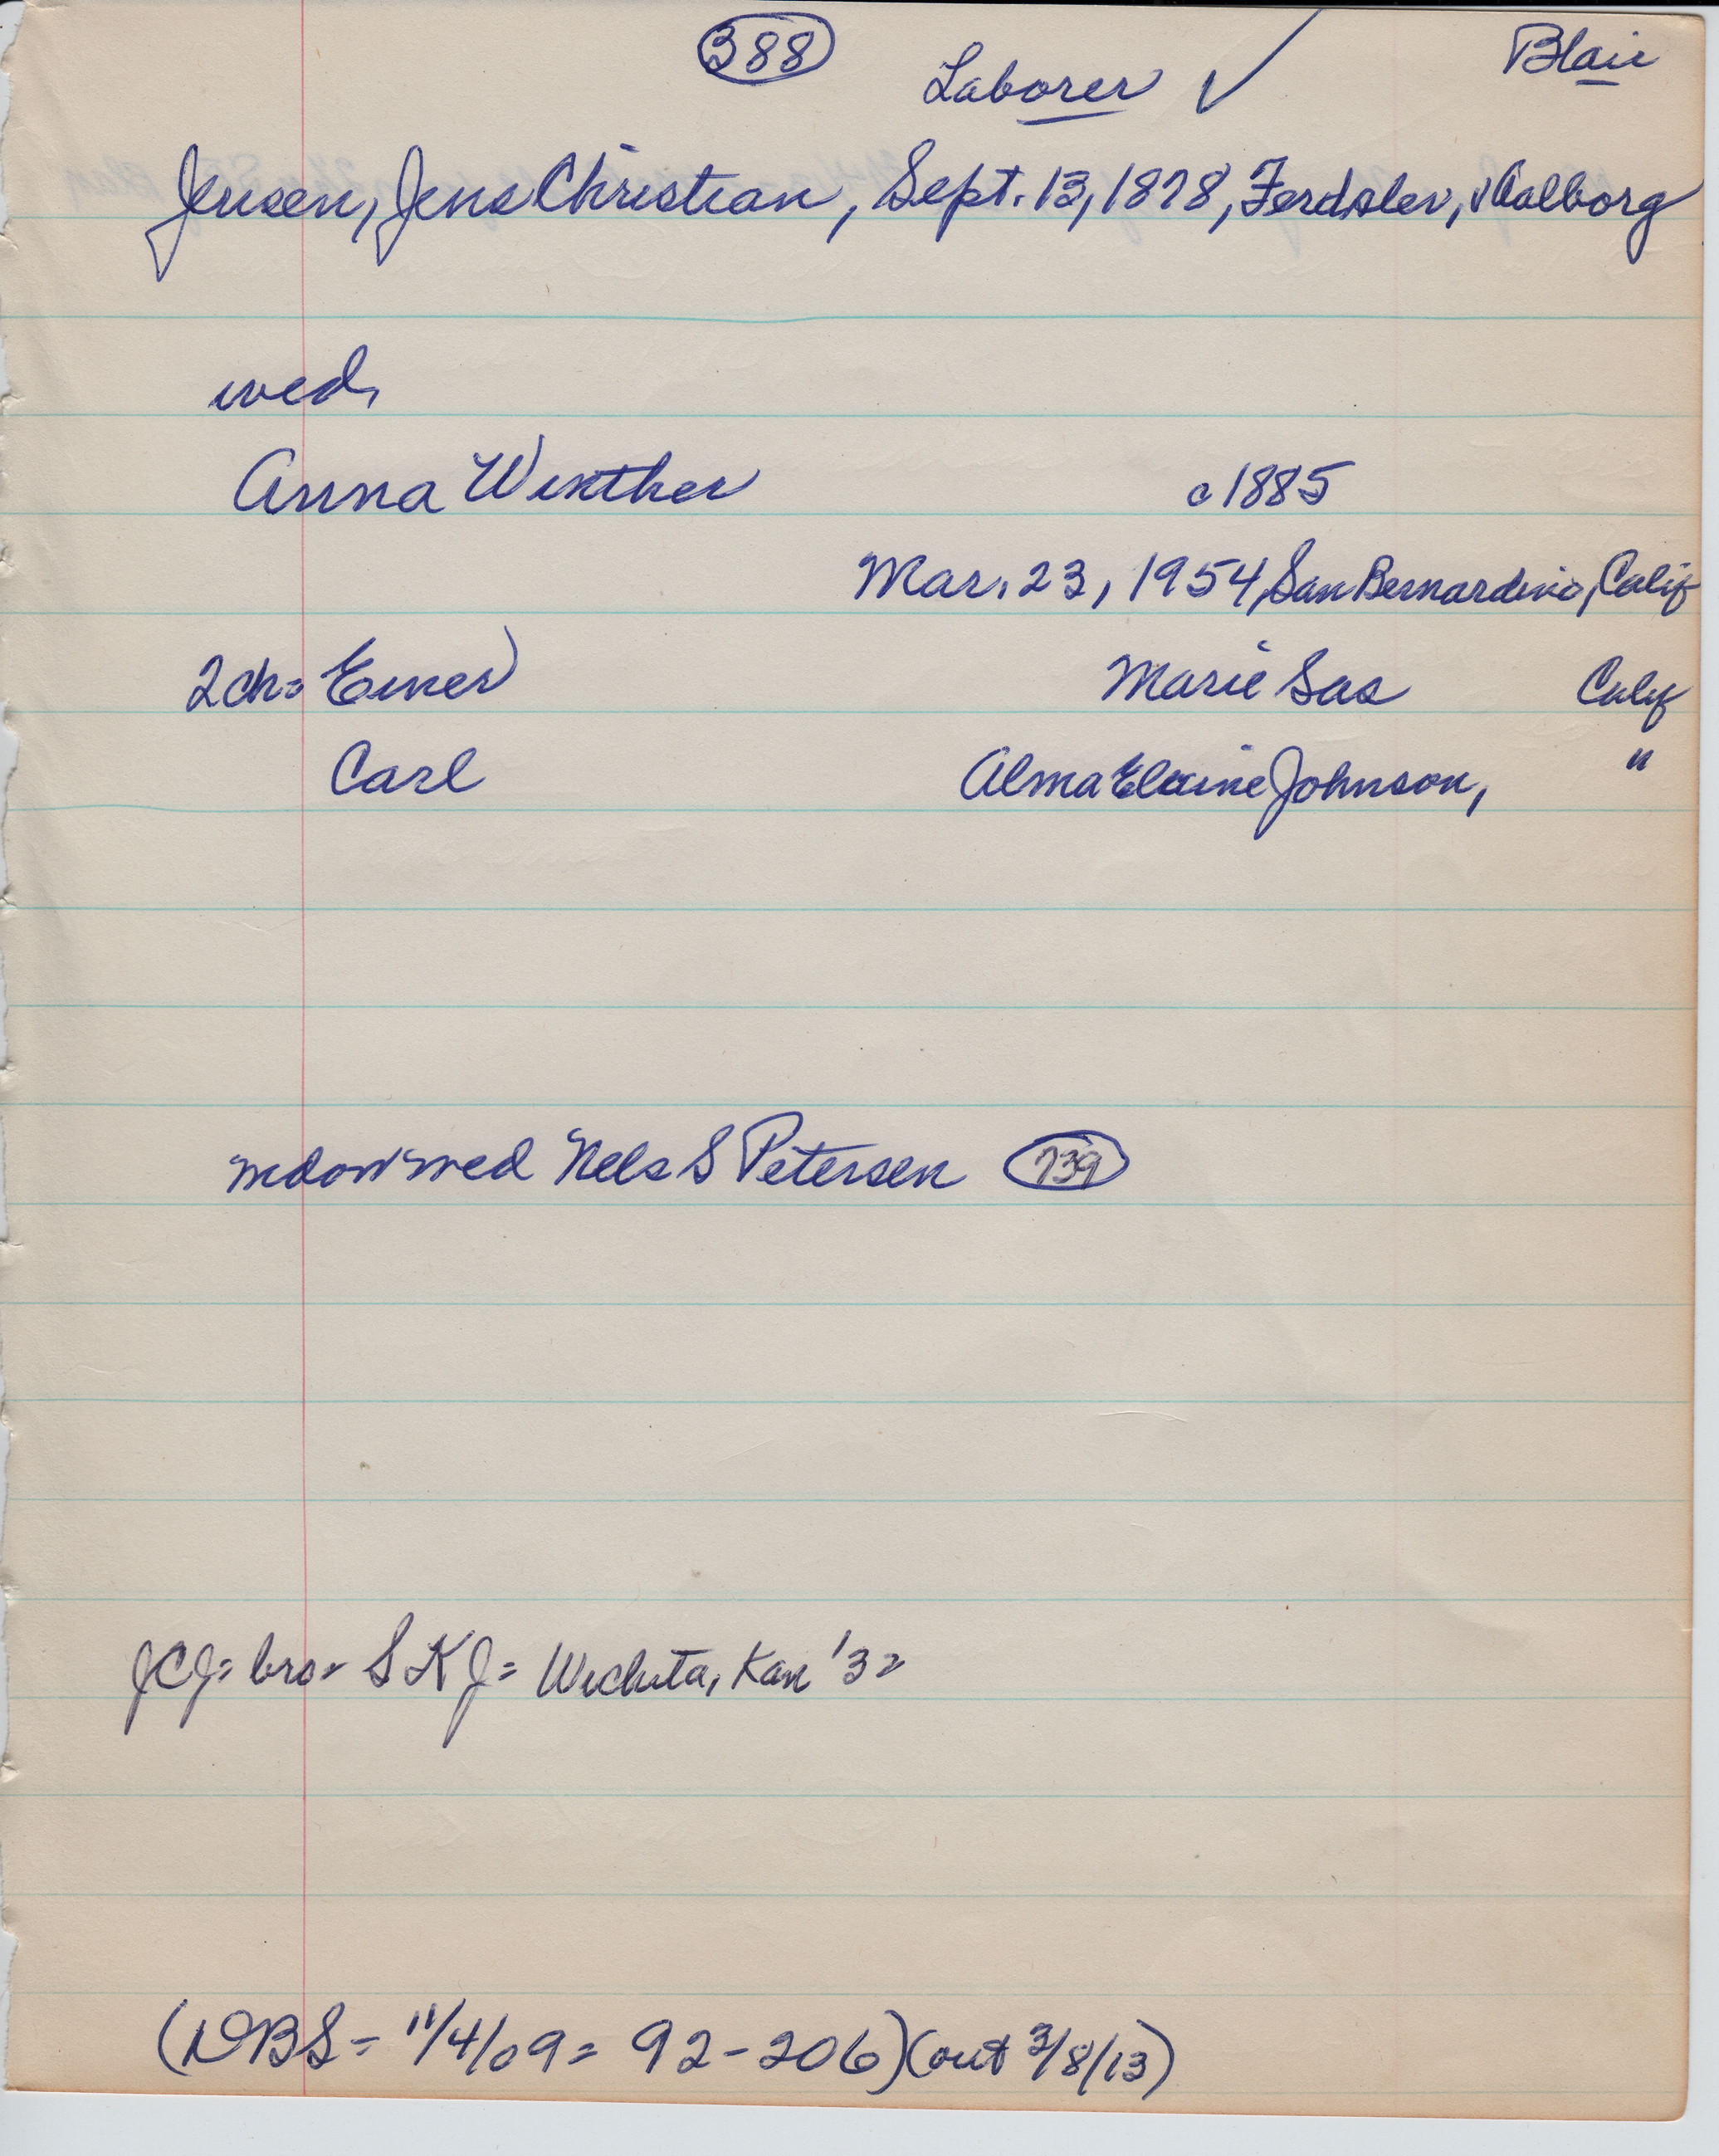 388
Laborer ✓
Blair
Jensen, Jens Christian, Sept. 13, 1878, Ferdslev, Aalborg
wed,
Anna Winther c 1885
Mar. 23, 1954, San Bernardino, Calif
2 ch = Einer Marie Sas Calif
Carl Alma Elaine Johnson, "
widow wed Nels S Petersen 739
JCJ = bro = S K J = Wichita, Kan '32
(DBS = 11/4/09 = 92-206) (out 3/8/13)